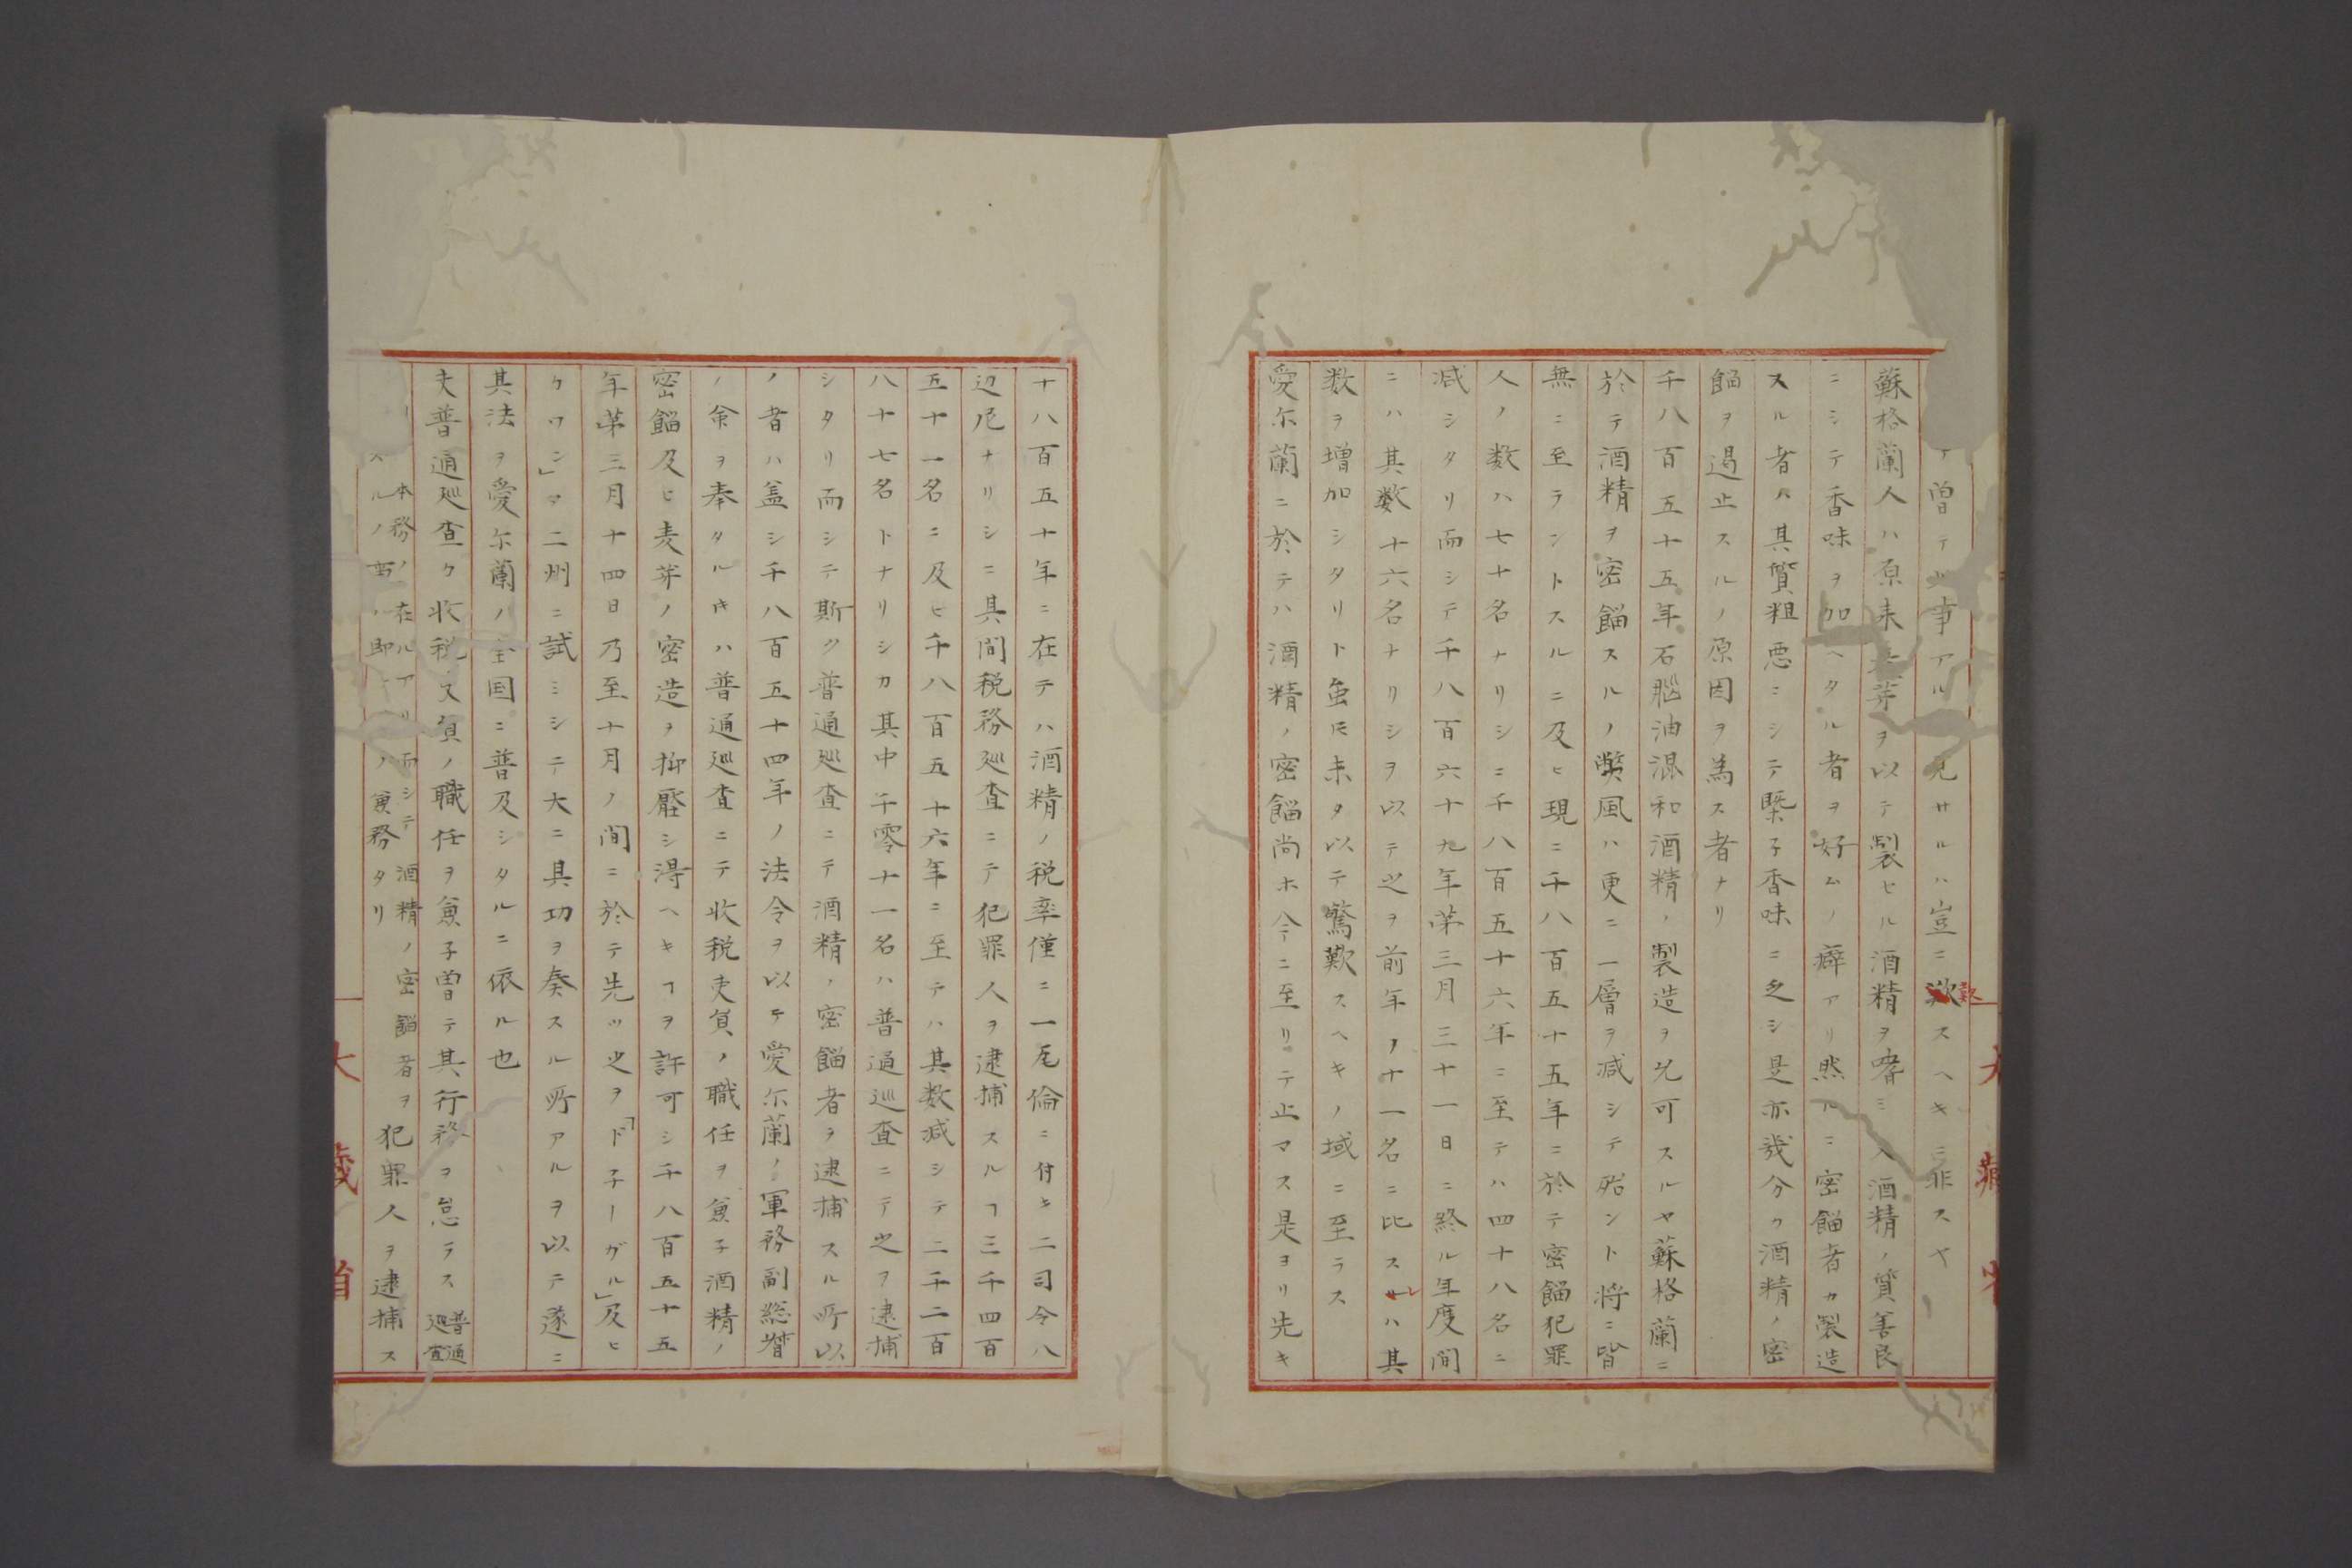 曽テ此事アル見サルハ豈ニ歎スヘキニ非スヤ
蘇格蘭人ハ原来麦芽ヲ以テ製セル酒精ヲ嗜ミ酒精ノ質善良
ニシテ香味ヲ加ヘタル者ヲ好ムノ癖アリ然ルニ密餾者カ製造
スル者ハ其質粗悪ニシテ槩子香味ニ乏シ是亦幾分カ酒精ノ密
餾ヲ遏止スルノ原因ヲ為ス者ナリ
千八百五十五年石脳油混和酒精ノ製造ヲ允可スルヤ蘇格蘭ニ
於テ酒精ヲ密餾スルノ獘風ハ更ニ一層ヲ減シテ殆ント将ニ皆
無ニ至ラントスルニ及ヒ現ニ千八百五十五年ニ於テ密餾犯罪
人ノ数ハ七十名ナリシニ千八百五十六年ニ至テハ四十八名ニ
減シタリ而シテ千八百六十九年第三月三十一日ニ終ル年度間
ニハ其数十六名ナリシヲ以テ之ヲ前年ノ十一名ニ比スレハ其
数ヲ増加シタリト虽𪜈未タ以テ驚歎スヘキノ域ニ至ラス
愛尓蘭ニ於テハ酒精ノ密餾尚ホ今ニ至リテ止マス是ヨリ先キ
大藏省
十八百五十年ニ在テハ酒精ノ税率僅ニ一瓦倫ニ付キ二司令八
辺尼ナリシニ其間税務廵査ニテ犯罪人ヲ逮捕スルヿ三千四百
五十一名ニ及ヒ千八百五十六年ニ至テハ其数減シテ二千二百
八十七名トナリシカ其中千零十一名ハ普通廵査ニテ之ヲ逮捕
シタリ而シテ斯ク普通廵査ニテ酒精ノ密餾者ヲ逮捕スル所以
ノ者ハ盖シ千八百五十四年ノ法令ヲ以テ愛尓蘭ノ軍務副総督
ノ命ヲ奉タルキハ普通廵査ニテ收税吏員ノ職任ヲ兼子酒精ノ
密餾及ヒ麦芽ノ密造ヲ抑壓シ得ヘキヿヲ許可シ千八百五十五
年第三月十四日乃至十月ノ間ニ於テ先ツ之ヲ「ドチーガル」及ヒ
ケワン」ノ二州ニ試ミシテ大ニ其功ヲ奏スル所アルヲ以テ遂ニ
其法ヲ愛尓蘭ノ全国ニ普及シタルニ依ル也
夫普通廵査ケ收税吏員ノ職任ヲ兼子曽テ其行務ヲ怠ラス普通廵査
本務ノ在ルアリ而シテ酒精ノ密餾者ヲ
スルノ即ノ兼務タリ犯罪人ヲ逮捕ス
大藏省